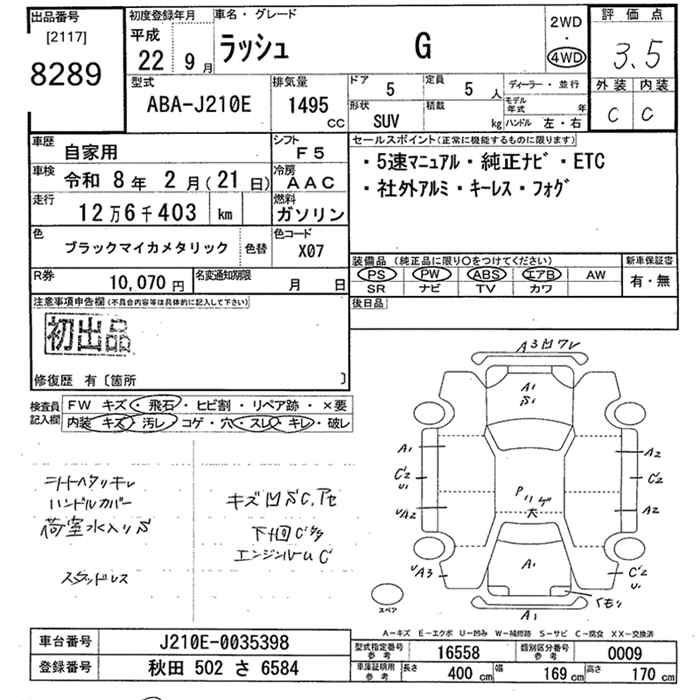 出品番号
[2117]
8289
初度登録年月
平成
22 9月
車名・グレード
ラッシュ G
2WD
・
4WD
評価点
3.5
外装 内装
C C
型式
ABA-J210E
排気量
1495
CC
ドア 5
定員 5 人
ディーラー・並行
形状 SUV
積載 kg
モデル年式 年
ハンドル 左・右
車歴 自家用
シフト F5
車検 令和 8年 2月(21日)
冷房 AAC
走行 12万6千403 km
燃料 ガソリン
色 ブラックマイカメタリック 色替
色コード X07
R券 10,070円
名変通知期限 月 日
セールスポイント(正常に機能するものに限ります)
・5速マニュアル・純正ナビ・ETC
・社外アルミ・キーレス・フォグ
装備品(純正品に限り○をつけてください)
新車保証書
PS PW ABS エアB AW
SR ナビ TV カワ
有・無
後日品
注意事項申告欄(不具合内容等は具体的に記入して下さい)
初出品
修復歴 有〔箇所 〕
検査員記入欄
FW キズ・飛石・ヒビ割・リペア跡・×要
内装 キズ・汚レ・コゲ・穴・スレ・キレ・破レ
シートヘタリキレ
ハンドルカバー
荷室水入りS
スタッドレス
キズ凹SC,Pセ
下廻C
エンジンルームC
A3凹ワレ
A1
A1
C2
U1
UA2
UA3
A2
C2
A2
C2
U1
A1
A1
スペア
A-キズ E-エクボ U-凹み W-補修跡 S-サビ C-腐食 XX-交換済
車台番号 J210E-0035398
登録番号 秋田 502 さ 6584
型式指定番号 参考 16558
類別区分番号 参考 0009
車庫証明用 参考 長さ 400 cm 幅 169 cm 高さ 170 cm